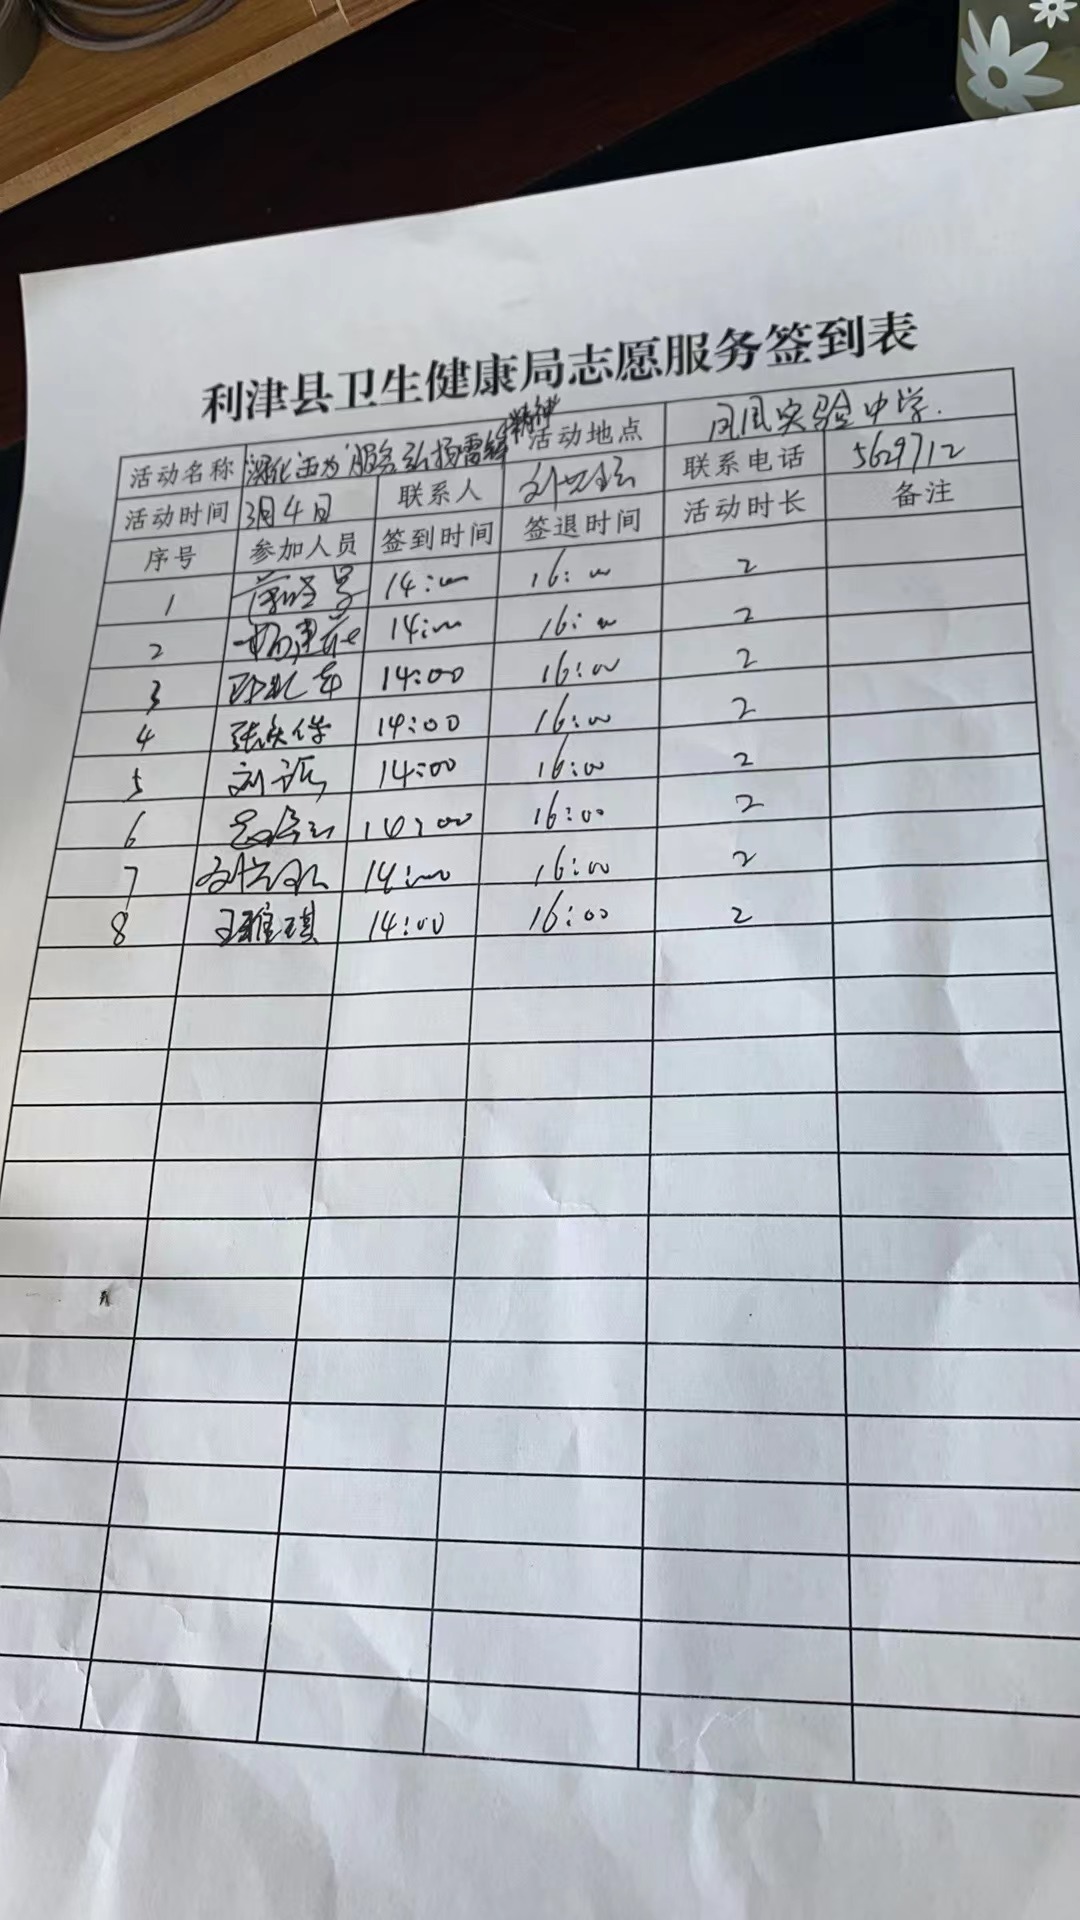 利津县卫生健康局志愿服务签到表
活动名称 深化 服务 弘扬雷锋精神 活动地点 凤凰实验中学
活动时间 3月4日 联系人 联系电话 5629712
序号 参加人员 签到时间 签退时间 活动时长 备注
1 14:00 16:00 2
2 14:00 16:00 2
3 14:00 16:00 2
4 14:00 16:00 2
5 刘 14:00 16:00 2
6 14:00 16:00 2
7 14:00 16:00 2
8 王雅琪 14:00 16:00 2